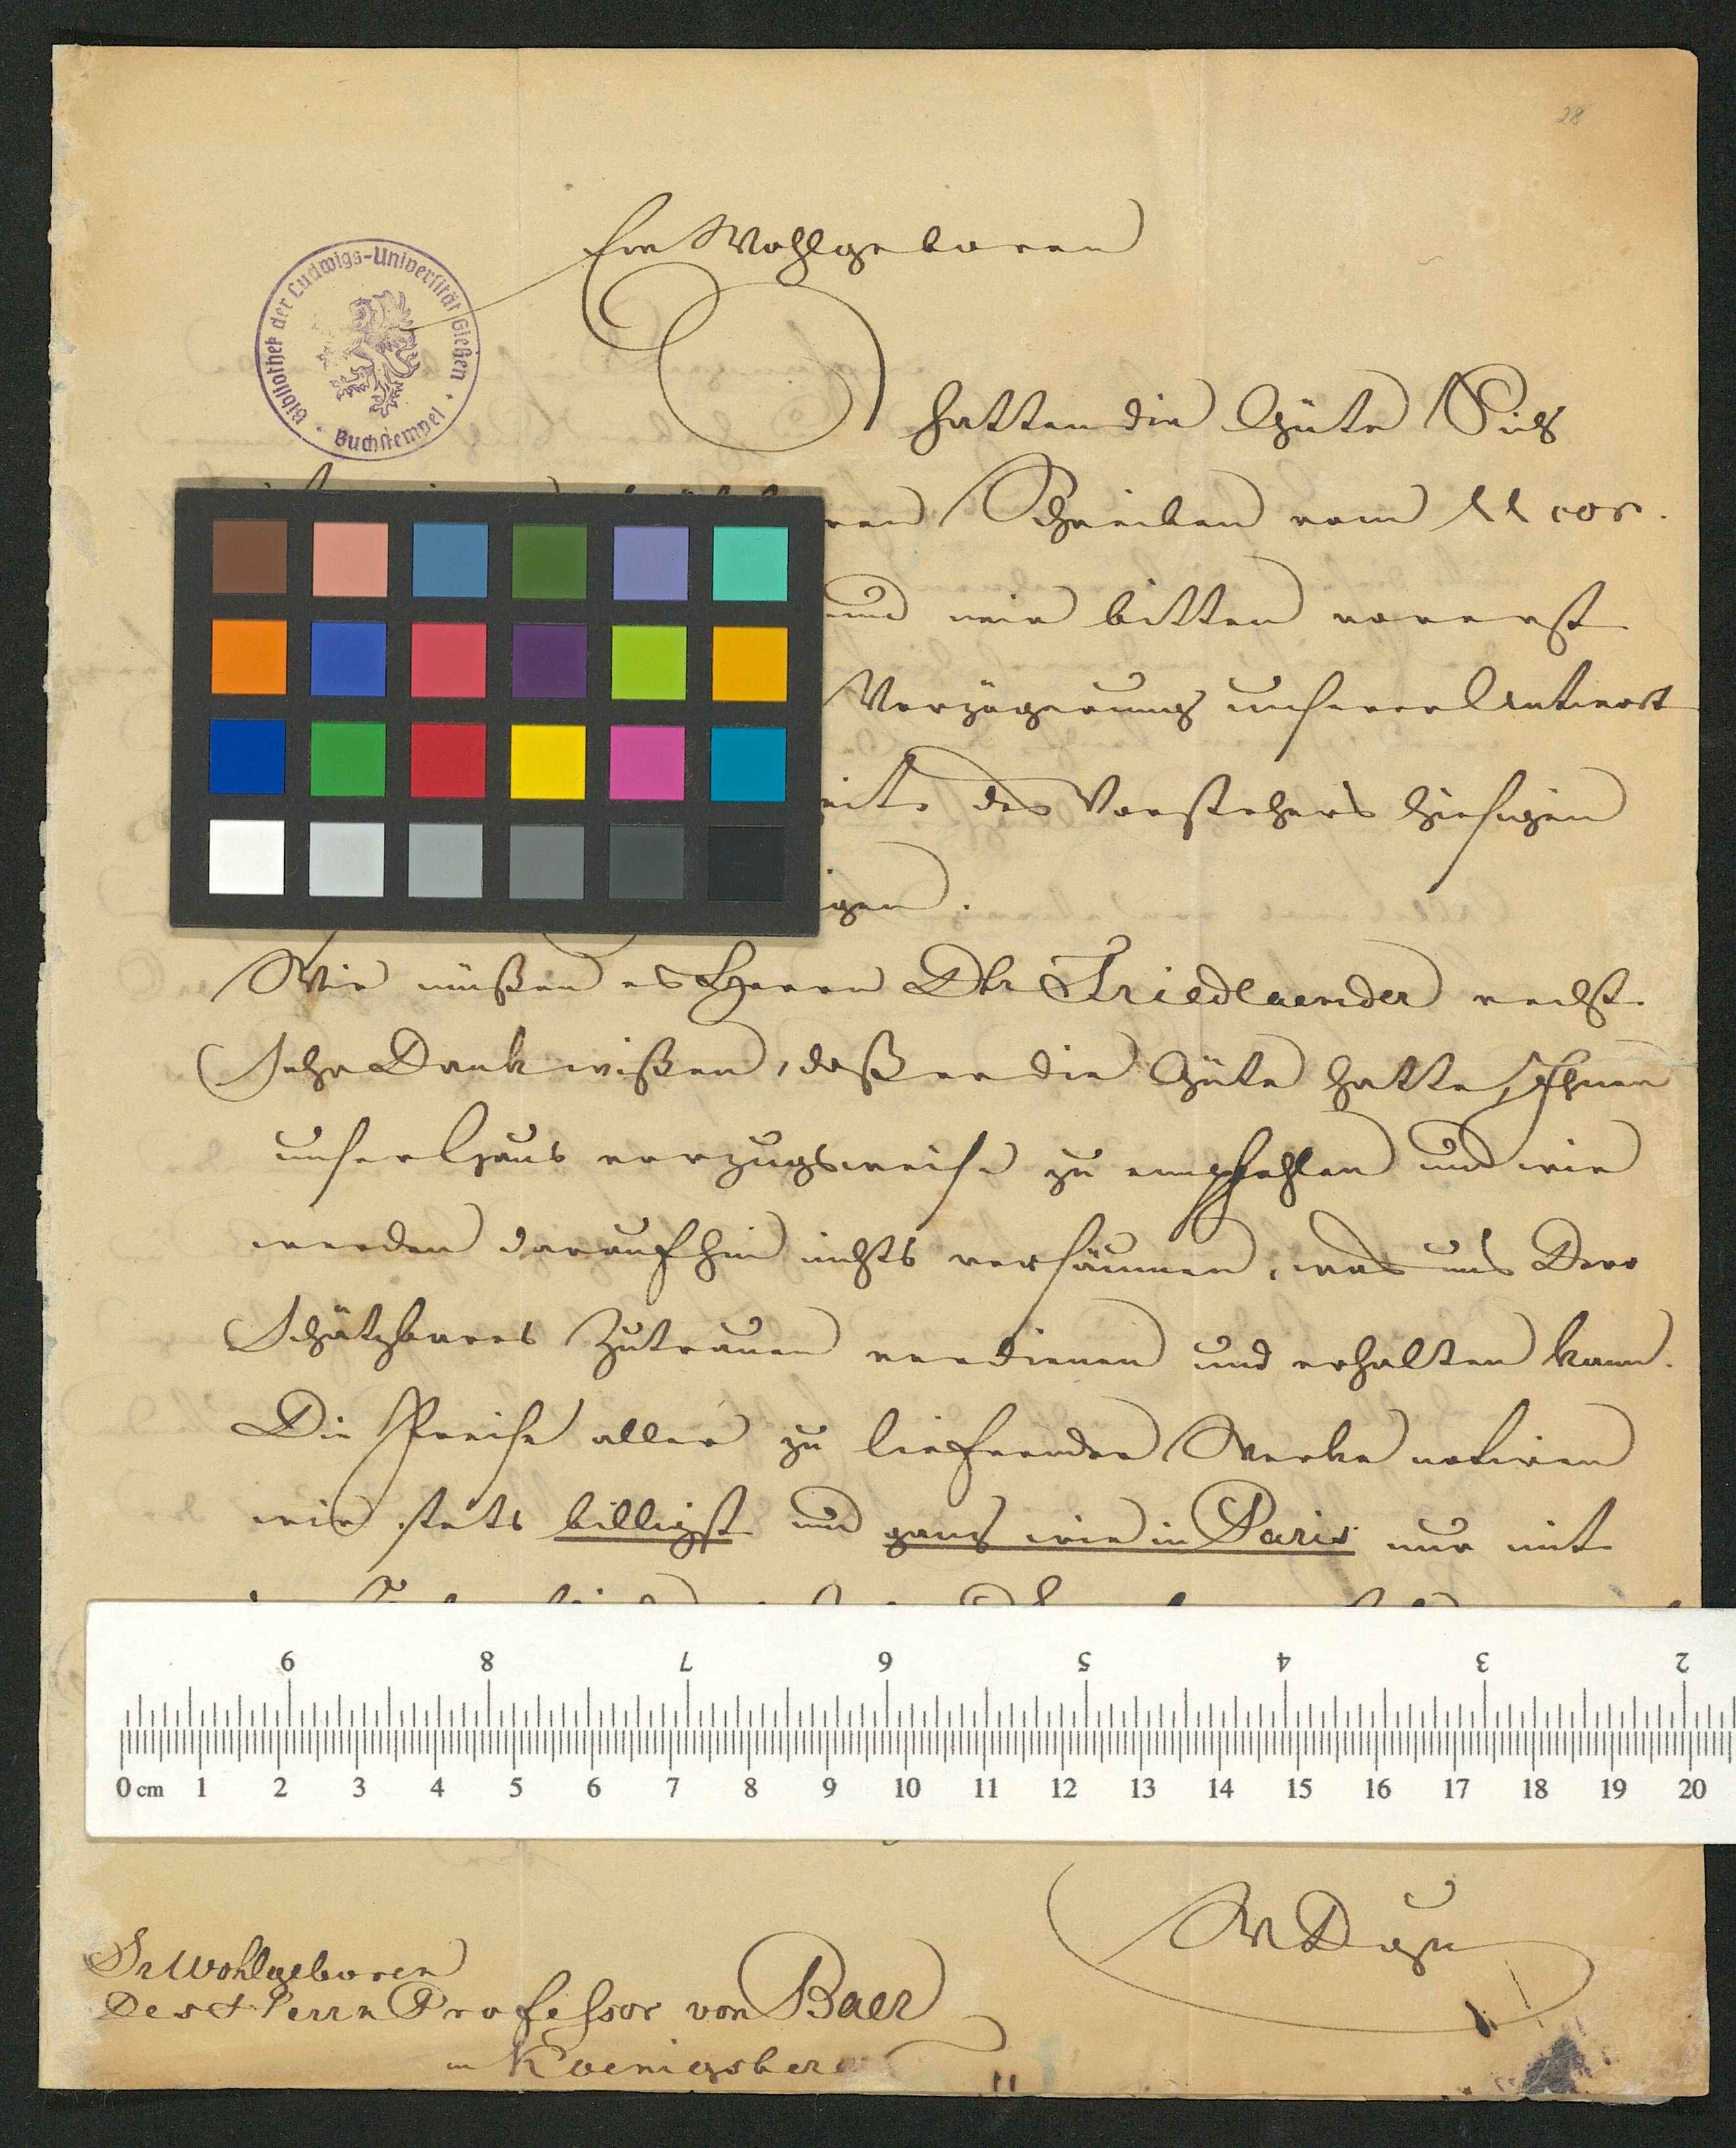 28
Ew Wohlgeboren
Bibliothek der Ludwigs-Universität Gießen
Buchstempel
hatten die Güte Sich
Schreiben vom 11 cor.
und wir bitten vorerst
Verzögerung unserer Antwort
des Vorstehers hiesigen
Wir müßen es Herrn Dr Friedlaender recht
Sehr Dank wißen, daß er die Güte hatte, Ihnen
unser Haus vorzugsweise zu empfehlen und wir
werden daraufhin nichts versäumen, was uns Dero
Schätzbares Zutrauen verdienen und erhalten kann.
Die Preise aller zu liefernden Werke notiren
wir stets billigst und ganz wie in Paris nur mit
9 8 7 6 5 4 3 2
0 cm 1 2 3 4 5 6 7 8 9 10 11 12 13 14 15 16 17 18 19 20
Sr Wohlgeboren
Des Herrn Professor von Baer
in Koenigsberg